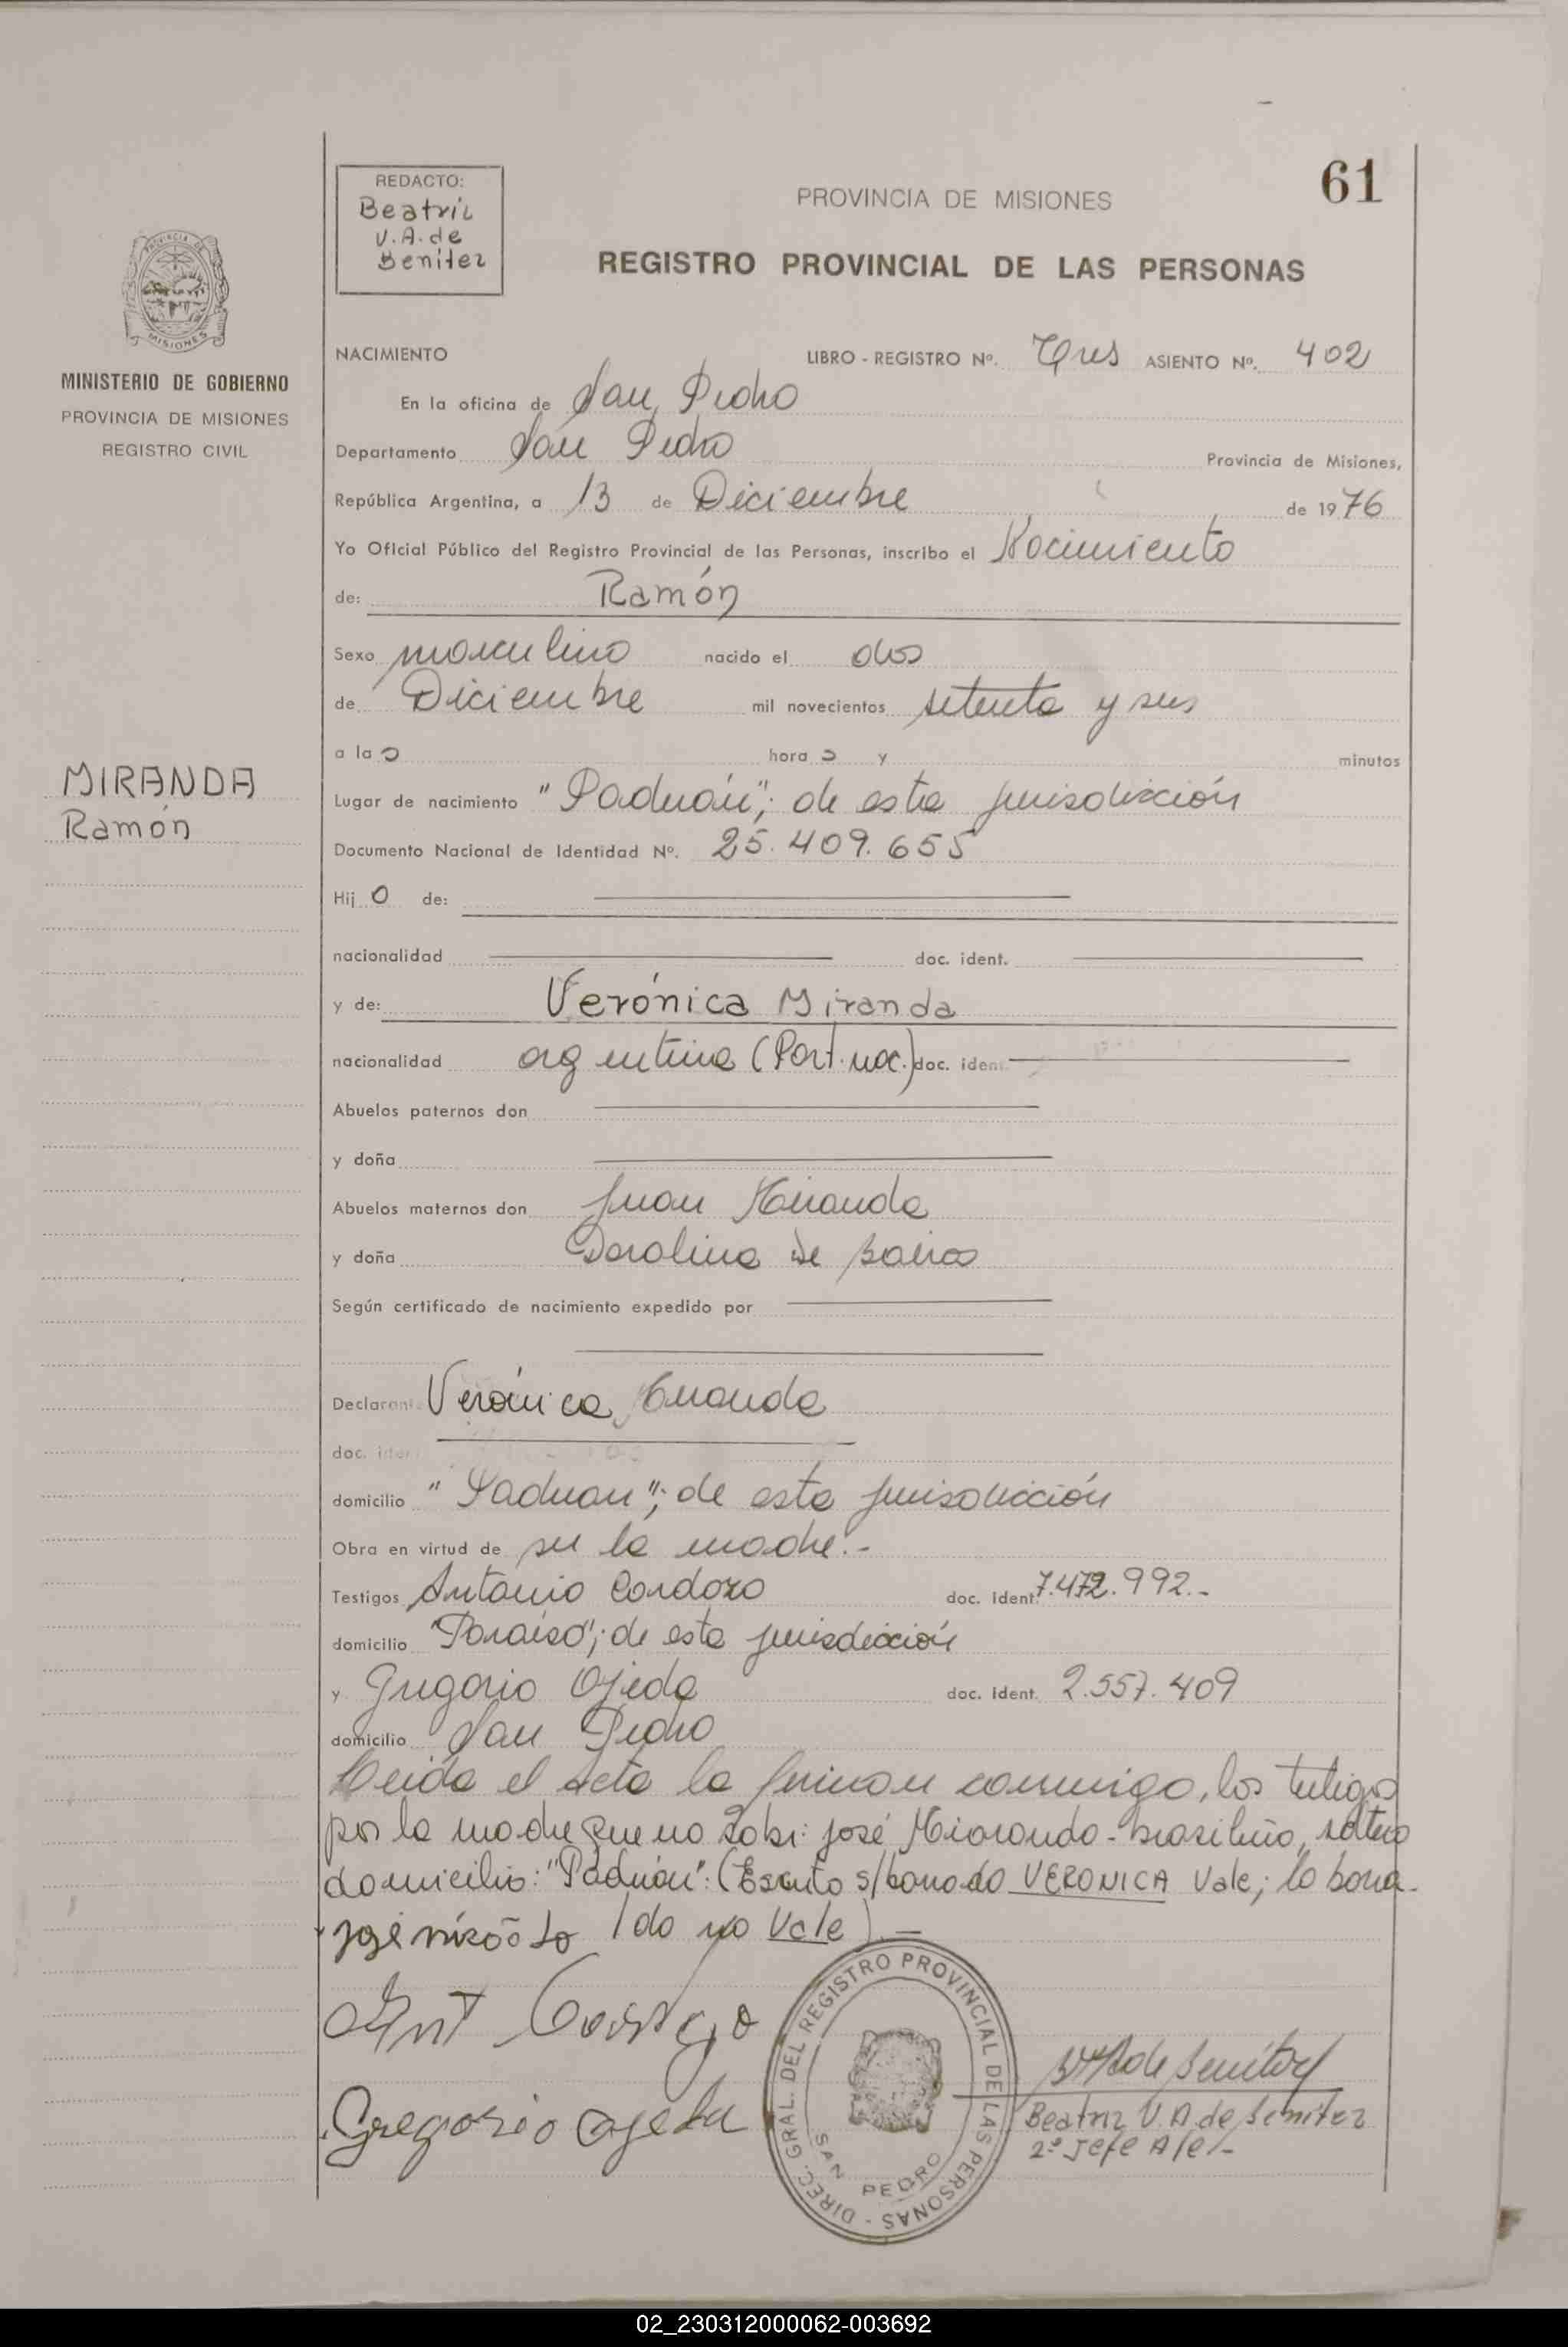 61
REDACTO:
Beatriz
V.A. de
Benitez
PROVINCIA DE MISIONES
REGISTRO PROVINCIAL DE LAS PERSONAS
PROVINCIA DE
MISIONES
MINISTERIO DE GOBIERNO
PROVINCIA DE MISIONES
REGISTRO CIVIL
MIRANDA
Ramón
NACIMIENTO LIBRO - REGISTRO Nº. Tres ASIENTO Nº. 402
En la oficina de San Pedro
Departamento San Pedro Provincia de Misiones,
República Argentina, a 13 de Diciembre de 1976
Yo Oficial Público del Registro Provincial de las Personas, inscribo el Nacimiento
de: Ramón
Sexo masculino nacido el dos
de Diciembre mil novecientos setenta y seis
a la s hora s y minutos
Lugar de nacimiento "Paduán"; de esta jurisdicción
Documento Nacional de Identidad Nº. 25.409.655
Hij o de:
nacionalidad doc. ident.
y de: Verónica Miranda
nacionalidad argentina (Part. nac.) doc. ident.
Abuelos paternos don
y doña
Abuelos maternos don Juan Miranda
y doña de
Según certificado de nacimiento expedido por
Declarante Verónica Miranda
doc. ident.
domicilio "Paduan"; de esta jurisdicción
Obra en virtud de ser la madre.-
Testigos Antonio Cardozo doc. ident. 7.472.992.-
domicilio "Paraíso"; de esta jurisdicción
y Gregorio Ojeda doc. ident. 2.557.409
domicilio San Pedro
Leida el Acta la firman conmigo, los testigos
por la madre que no sabe: José Miranda - brasileño, soltero
domicilio: "Paduán": (Escrito s/borrado VERONICA Vale; lo borra-
do no Vale).-
Gregorio Ojeda
DIREC. GRAL. DEL REGISTRO PROVINCIAL DE LAS PERSONAS -
SAN PEDRO
Beatriz V.A. de Benitez
2º Jefe A/c/-
02_230312000062-003692